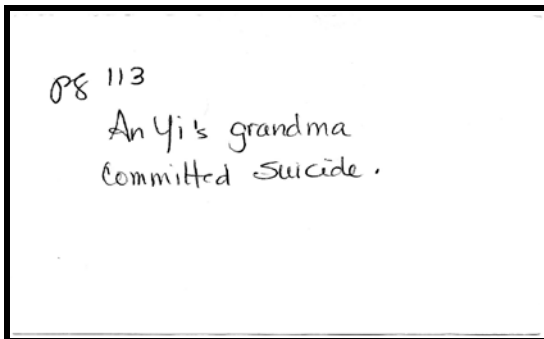 pg 113
An Yi's grandma
Committed Suicide.